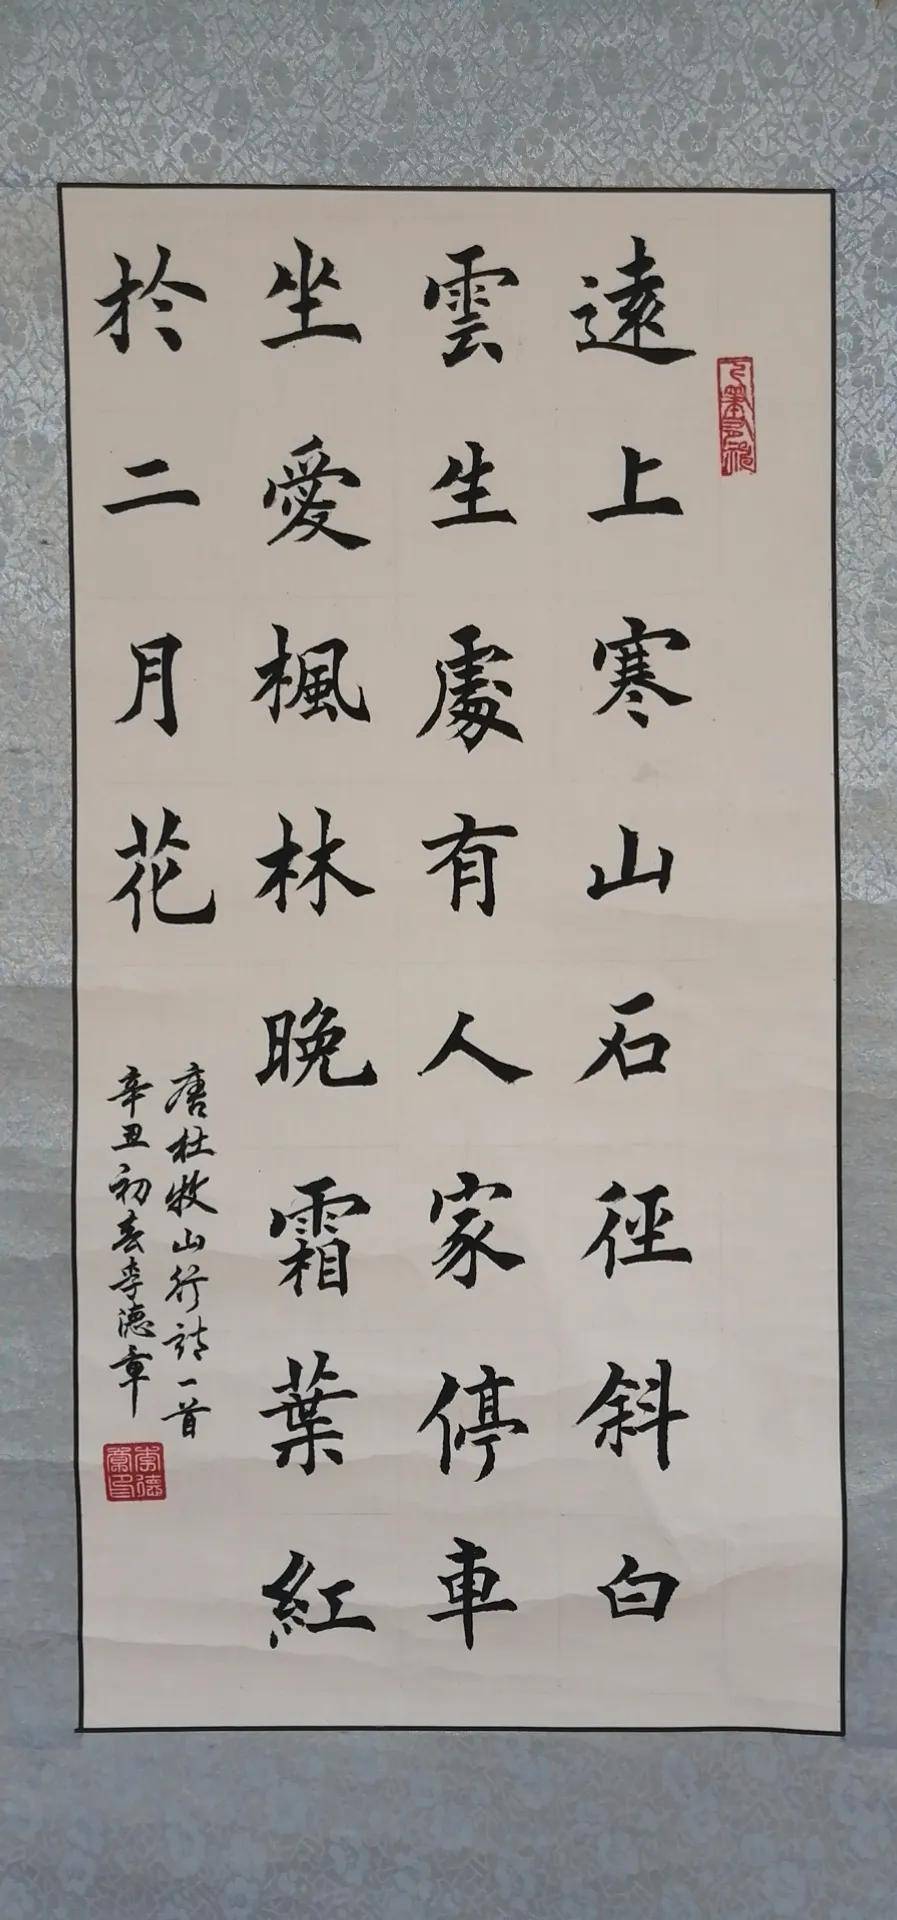 遠上寒山石徑斜白
雲生處有人家停車
坐愛楓林晚霜葉紅
於二月花
唐杜牧山行詩一首
辛丑初春李德章